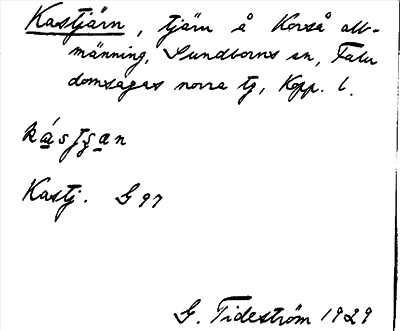 Kastjärn, tjärn å Korså all-
männing, Sundborns sn, Falu
domsagas norra tg, Kopp. l.
Kastj. G 97
G. Tideström 1929